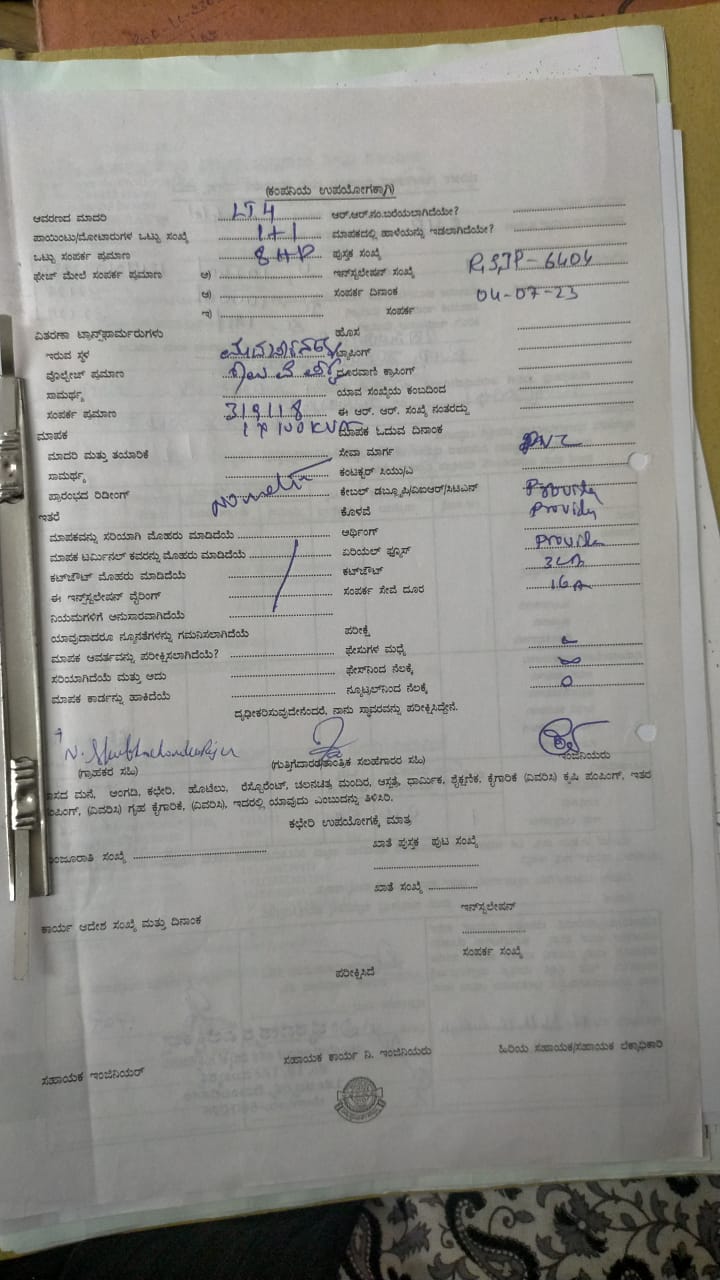 (ಕಂಪನಿಯ ಉಪಯೋಗಕ್ಕಾಗಿ)
ಆವರಣದ ಮಾದರಿ LT4 ಆರ್.ಆರ್.ನಂ.ಬರೆಯಲಾಗಿದೆಯೇ?
ಪಾಯಿಂಟು/ಮೋಟಾರುಗಳ ಒಟ್ಟು ಸಂಖ್ಯೆ 1+1 ಮಾಪಕದಲ್ಲಿ ಹಾಳೆಯನ್ನು ಇಡಲಾಗಿದೆಯೇ?
ಒಟ್ಟು ಸಂಪರ್ಕ ಪ್ರಮಾಣ 8HP ಪುಸ್ತಕ ಸಂಖ್ಯೆ
ಫೇಜ್ ಮೇಲೆ ಸಂಪರ್ಕ ಪ್ರಮಾಣ ಅ) ಇನ್‌ಸ್ಟಲೇಷನ್ ಸಂಖ್ಯೆ RSJP-6404
ಆ) ಸಂಪರ್ಕ ದಿನಾಂಕ 04-07-23
ಇ) ಸಂಪರ್ಕ
ವಿತರಣಾ ಟ್ರಾನ್ಸ್‌ಫಾರ್ಮರುಗಳು ಹೊಸ
ಇರುವ ಸ್ಥಳ ಟ್ರ್ಯಾಪಿಂಗ್
ವೋಲ್ಟೇಜ್ ಪ್ರಮಾಣ ದೂರವಾಣಿ ಕ್ರಾಸಿಂಗ್
ಸಾಮರ್ಥ್ಯ ಯಾವ ಸಂಖ್ಯೆಯ ಕಂಬದಿಂದ
ಸಂಪರ್ಕ ಪ್ರಮಾಣ 319118 ಈ ಆರ್. ಆರ್. ಸಂಖ್ಯೆ ನಂತರದ್ದು
ಮಾಪಕ 1X100KVA ಮಾಪಕ ಓದುವ ದಿನಾಂಕ
ಮಾದರಿ ಮತ್ತು ತಯಾರಿಕೆ ಸೇವಾ ಮಾರ್ಗ
ಸಾಮರ್ಥ್ಯ ಕಂಟಕ್ಟರ್ ಸಿಯು/ಎ
ಪ್ರಾರಂಭದ ರಿಡೀಂಗ್ No meter ಕೇಬಲ್ ಡಬ್ಲೂಪಿ/ವಿಐಆರ್/ಸಿಟಿಎಸ್ Provides
ಇತರೆ ಕೊಳವೆ Provides
ಮಾಪಕವನ್ನು ಸರಿಯಾಗಿ ಮೊಹರು ಮಾಡಿದೆಯೆ ಆರ್ಥಿಂಗ್
ಮಾಪಕ ಟರ್ಮಿನಲ್ ಕವರನ್ನು ಮೊಹರು ಮಾಡಿದೆಯೆ ಏರಿಯಲ್ ಫ್ಯೂಸ್ Provides
ಕಟ್‌ಔಟ್ ಮೊಹರು ಮಾಡಿದೆಯೆ ಕಟ್‌ಔಟ್
ಈ ಇನ್‌ಸ್ಟಲೇಷನ್ ವೈರಿಂಗ್ ಸಂಪರ್ಕ ಸೇವೆ ದೂರ 16A
ನಿಯಮಗಳಿಗೆ ಅನುಸಾರವಾಗಿದೆಯೆ
ಯಾವುದಾದರೂ ನ್ಯೂನತೆಗಳನ್ನು ಗಮನಿಸಲಾಗಿದೆಯೆ ಪರೀಕ್ಷೆ
ಮಾಪಕ ಆವರ್ತವನ್ನು ಪರೀಕ್ಷಿಸಲಾಗಿದೆಯೆ? ಫೇಸುಗಳ ಮಧ್ಯೆ
ಸರಿಯಾಗಿದೆಯೆ ಮತ್ತು ಆದು ಫೇಸ್‌ನಿಂದ ನೆಲಕ್ಕೆ
ಮಾಪಕ ಕಾರ್ಡನ್ನು ಹಾಕಿದೆಯೆ ನ್ಯೂಟ್ರಲ್‌ನಿಂದ ನೆಲಕ್ಕೆ 0
ದೃಢೀಕರಿಸುವುದೇನೆಂದರೆ, ನಾನು ಸ್ಥಾವರವನ್ನು ಪರೀಕ್ಷಿಸಿದ್ದೇನೆ.
(ಗ್ರಾಹಕರ ಸಹಿ) (ಗುತ್ತಿಗೆದಾರರ/ತಾಂತ್ರಿಕ ಸಲಹೆಗಾರರ ಸಹಿ) ಇಂಜಿನಿಯರು
ವಾಸದ ಮನೆ, ಅಂಗಡಿ, ಕಛೇರಿ, ಹೊಟೆಲು, ರೆಸ್ಟೋರೆಂಟ್, ಚಲನಚಿತ್ರ ಮಂದಿರ, ಆಸ್ಪತ್ರೆ, ಧಾರ್ಮಿಕ, ಶೈಕ್ಷಣಿಕ, ಕೈಗಾರಿಕೆ (ವಿವರಿಸಿ) ಕೃಷಿ ಪಂಪಿಂಗ್, ಇತರ
ಪಂಪಿಂಗ್, (ವಿವರಿಸಿ) ಗೃಹ ಕೈಗಾರಿಕೆ, (ವಿವರಿಸಿ), ಇದರಲ್ಲಿ ಯಾವುದು ಎಂಬುದನ್ನು ತಿಳಿಸಿರಿ.
ಕಛೇರಿ ಉಪಯೋಗಕ್ಕೆ ಮಾತ್ರ
ಮಂಜೂರಾತಿ ಸಂಖ್ಯೆ ಖಾತೆ ಪುಸ್ತಕ ಪುಟ ಸಂಖ್ಯೆ
ಖಾತೆ ಸಂಖ್ಯೆ
ಕಾರ್ಯ ಆದೇಶ ಸಂಖ್ಯೆ ಮತ್ತು ದಿನಾಂಕ ಇನ್‌ಸ್ಟಲೇಷನ್
ಸಂಪರ್ಕ ಸಂಖ್ಯೆ
ಪರೀಕ್ಷಿಸಿದೆ
ಸಹಾಯಕ ಇಂಜಿನಿಯರ್ ಸಹಾಯಕ ಕಾರ್ಯ ನಿ. ಇಂಜಿನಿಯರು ಹಿರಿಯ ಸಹಾಯಕ/ಸಹಾಯಕ ಲೆಕ್ಕಾಧಿಕಾರಿ